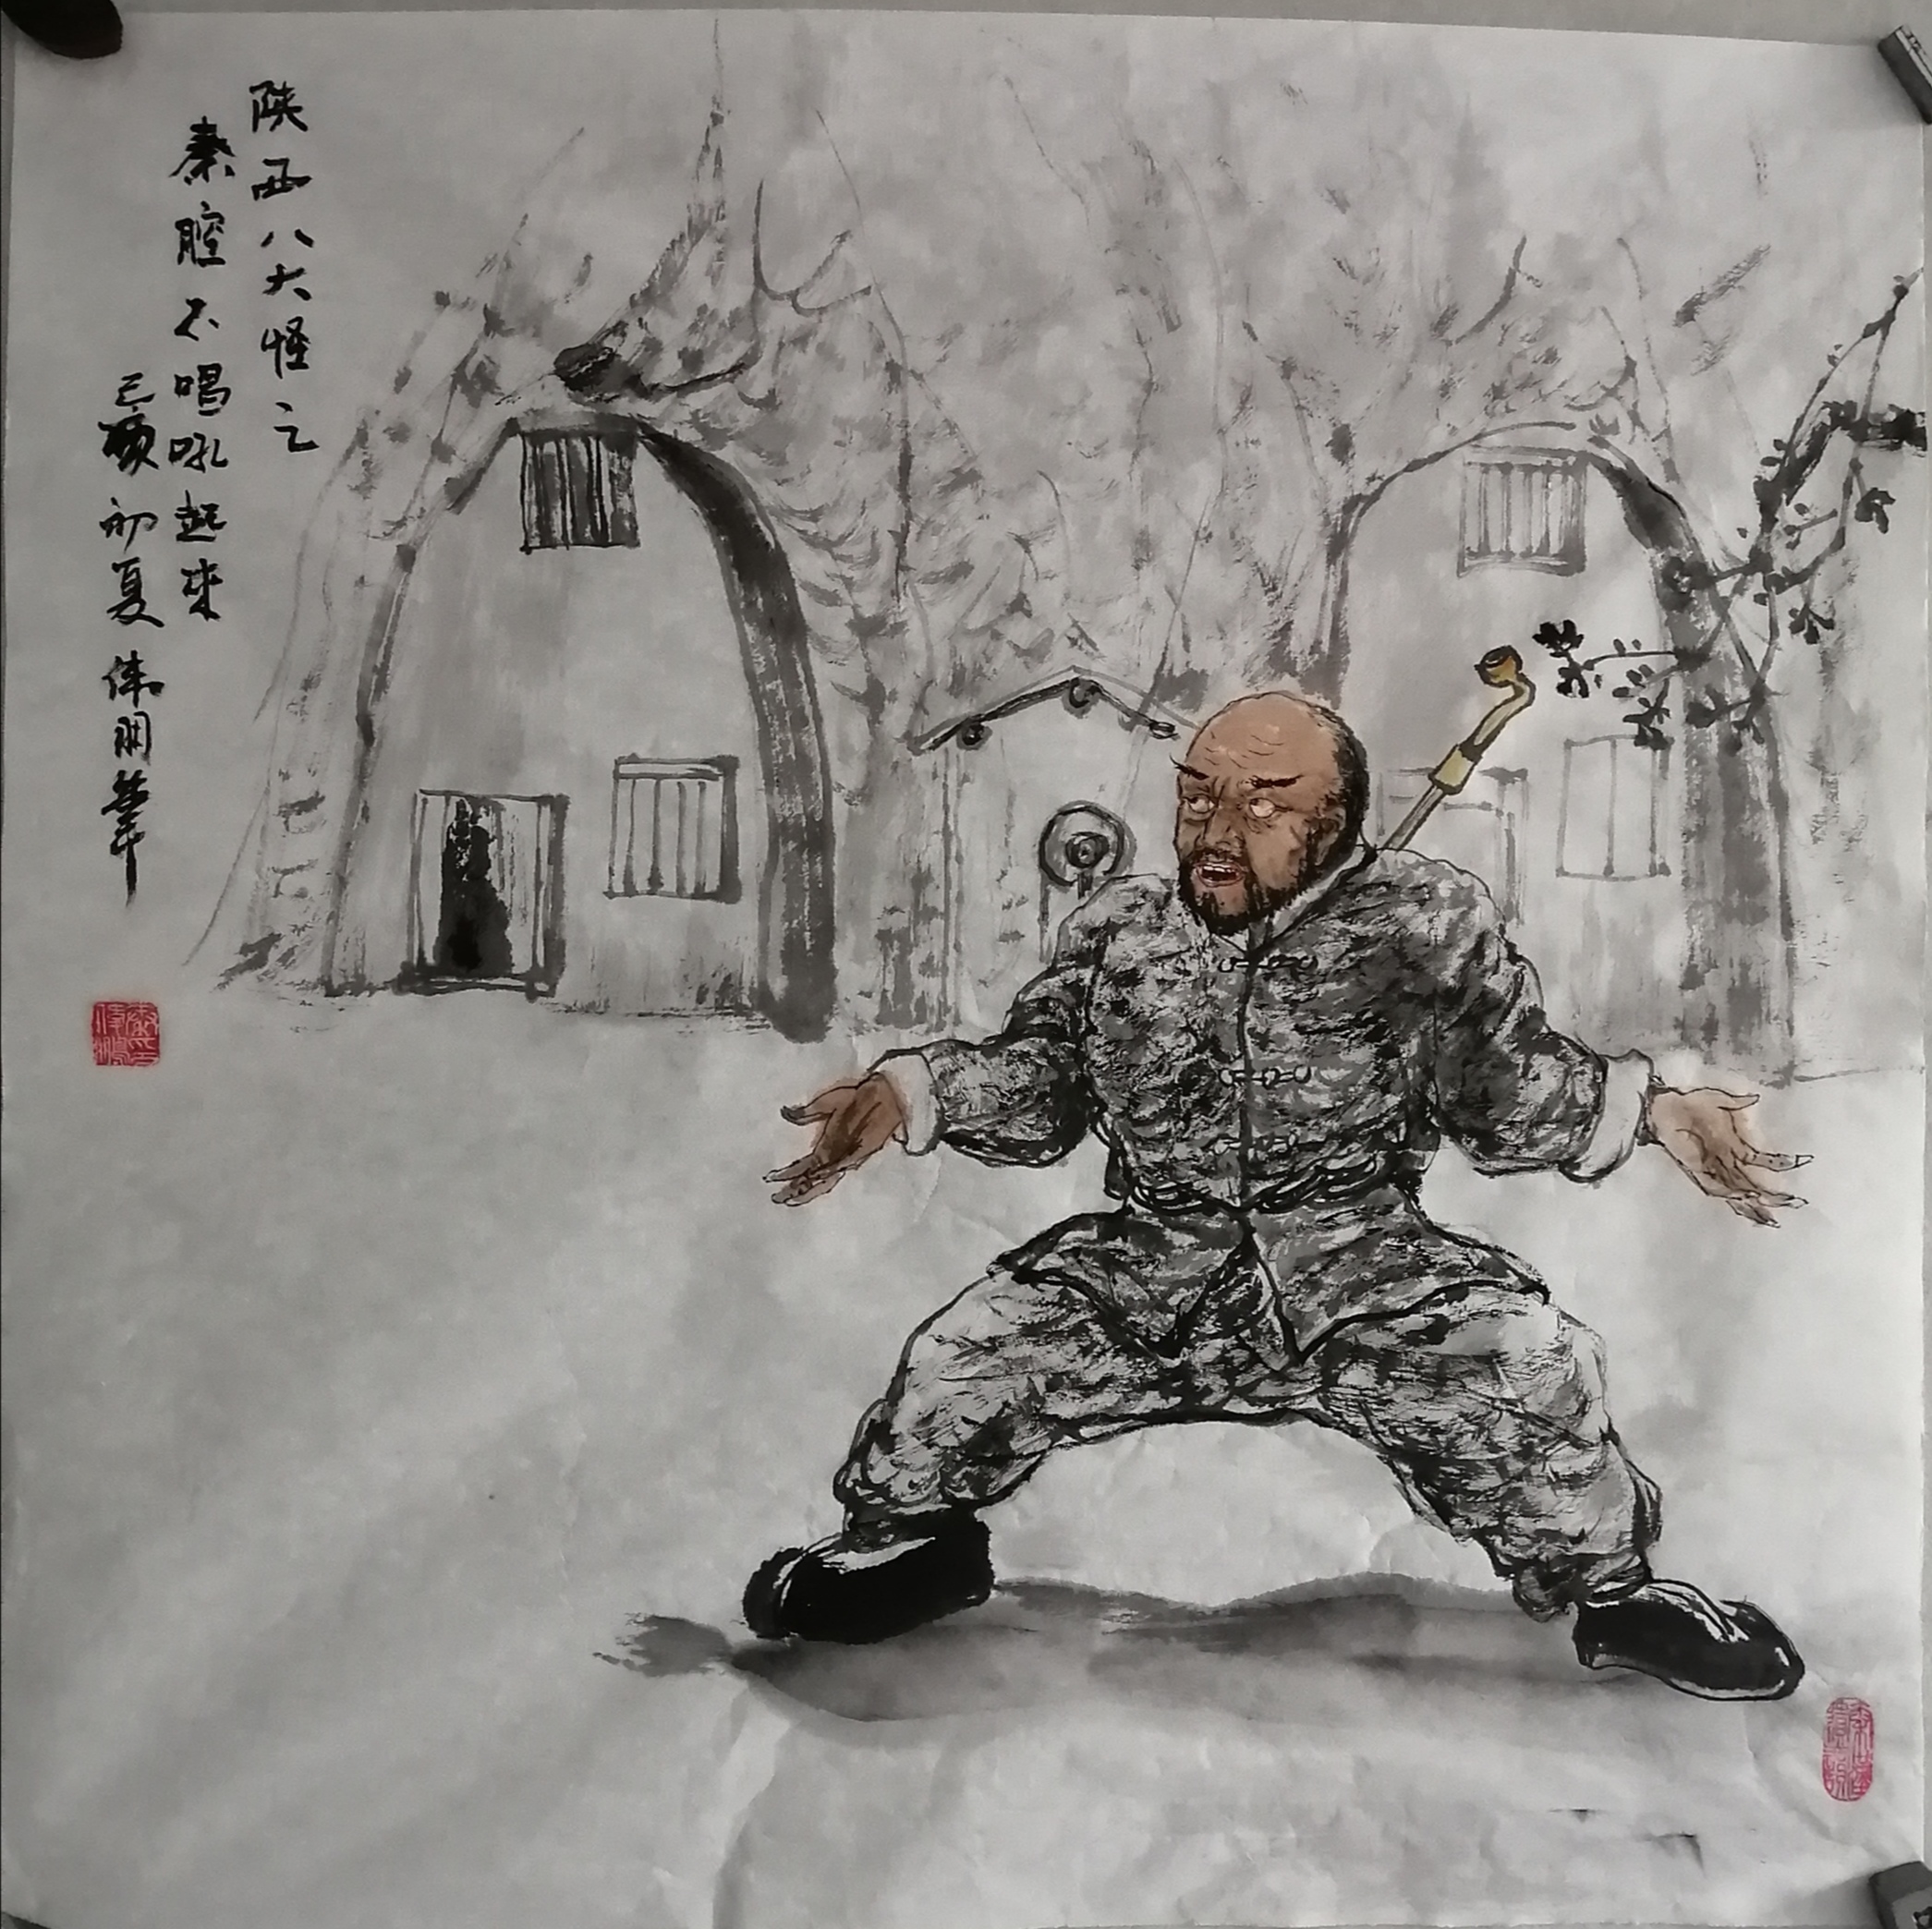 陕西八大怪之
秦腔不唱吼起来
己亥初夏 伟朋笔